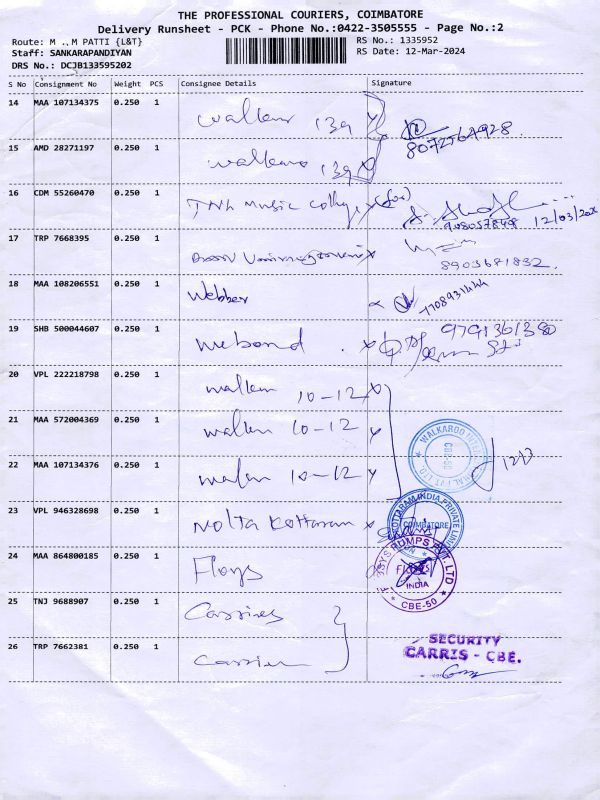 THE PROFESSIONAL COURIERS, COIMBATORE
Delivery Runsheet - PCK - Phone No.:0422-3505555 - Page No.:2
Route: M .,M PATTI {L&T}
RS No.: 1335952
Staff: SANKARAPANDIYAN
RS Date: 12-Mar-2024
DRS No.: DCJB133595202
S No Consignment No Weight PCS Consignee Details Signature
14 MAA 107134375 0.250 1 139
8072764928
15 AMD 28271197 0.250 1 139
16 CDM 55260470 0.250 1 TNh Music College
908057848 12/03/202
17 TRP 7668395 0.250 1
8903671832
18 MAA 108206551 0.250 1 Webber
19 SHB 500044607 0.250 1 Webond
9791361380
20 VPL 222218798 0.250 1 10-12
21 MAA 572004369 0.250 1 10-12
WALKAROO
CBE-50
22 MAA 107134376 0.250 1 10-12
23 VPL 946328698 0.250 1 Nolta Kottaram
KOTTARAM INDIA PRIVATE
COIMBATORE
24 MAA 864800185 0.250 1 Floys
PUMPS PVT. LTD
INDIA
CBE-50
25 TNJ 9688907 0.250 1
26 TRP 7662381 0.250 1 Carrier
SECURITY
CARRIS - CBE.